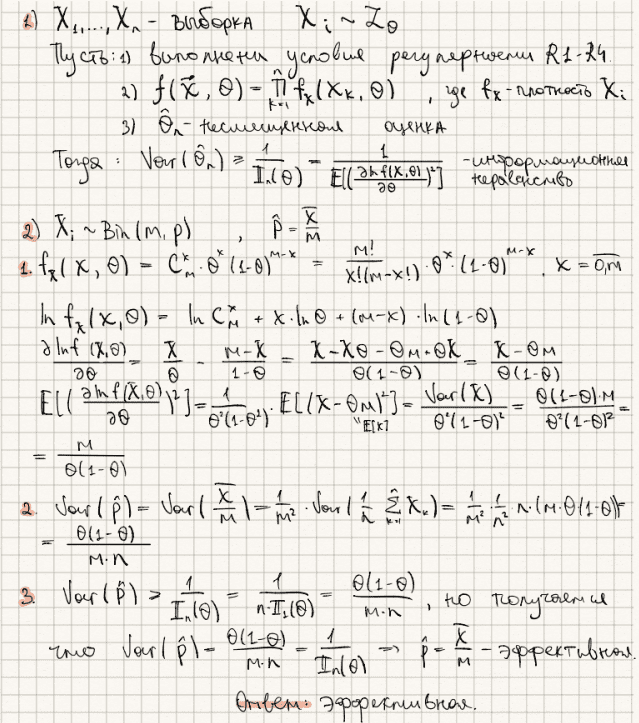 1) X₁,...,Xₙ - выборка Xᵢ ~ ℒ_θ
Пусть: 1) выполнены условия регулярности R1-R4.
2) f(x⃗, θ) = ∏ₖ₌₁ⁿ fₓ(xₖ, θ) , где fₓ - плотность Xᵢ
3) θ̂ₙ - несмещенная оценка
Тогда: Var(θ̂ₙ) ≥ 1/Iₙ(θ) = 1/E[(∂ln f(X,θ)/∂θ)²] - информационное неравенство
2) Xᵢ ~ Bin(m, p) , p̂ = X̅/m
1. fₓ(x, θ) = Cₘˣ · θˣ (1-θ)ᵐ⁻ˣ = m!/(x!(m-x!)) · θˣ · (1-θ)ᵐ⁻ˣ, x = 0,m
ln fₓ(x,θ) = ln Cₘˣ + x·lnθ + (m-x)·ln(1-θ)
∂ln f(X,θ)/∂θ = X/θ - (m-X)/(1-θ) = (X-Xθ-θm+θX)/(θ(1-θ)) = (X-θm)/(θ(1-θ))
E[(∂ln f(X,θ)/∂θ)²] = 1/(θ²(1-θ²)) · E[(X-θm)²] = Var(X)/(θ²(1-θ)²) = θ(1-θ)·m/(θ²(1-θ)²) =
"E[X]
= m/(θ(1-θ))
2. Var(p̂) = Var(X̅/m) = 1/m² · Var(1/n ∑ₖ₌₁ⁿ Xₖ) = 1/m² · 1/n² · n·(m·θ(1-θ)) =
= θ(1-θ)/(m·n)
3. Var(p̂) ≥ 1/Iₙ(θ) = 1/(n·I₁(θ)) = θ(1-θ)/(m·n) , но получается
что Var(p̂) = θ(1-θ)/(m·n) = 1/Iₙ(θ) => p̂ = X̅/m - эффективная.
Ответ: эффективная.